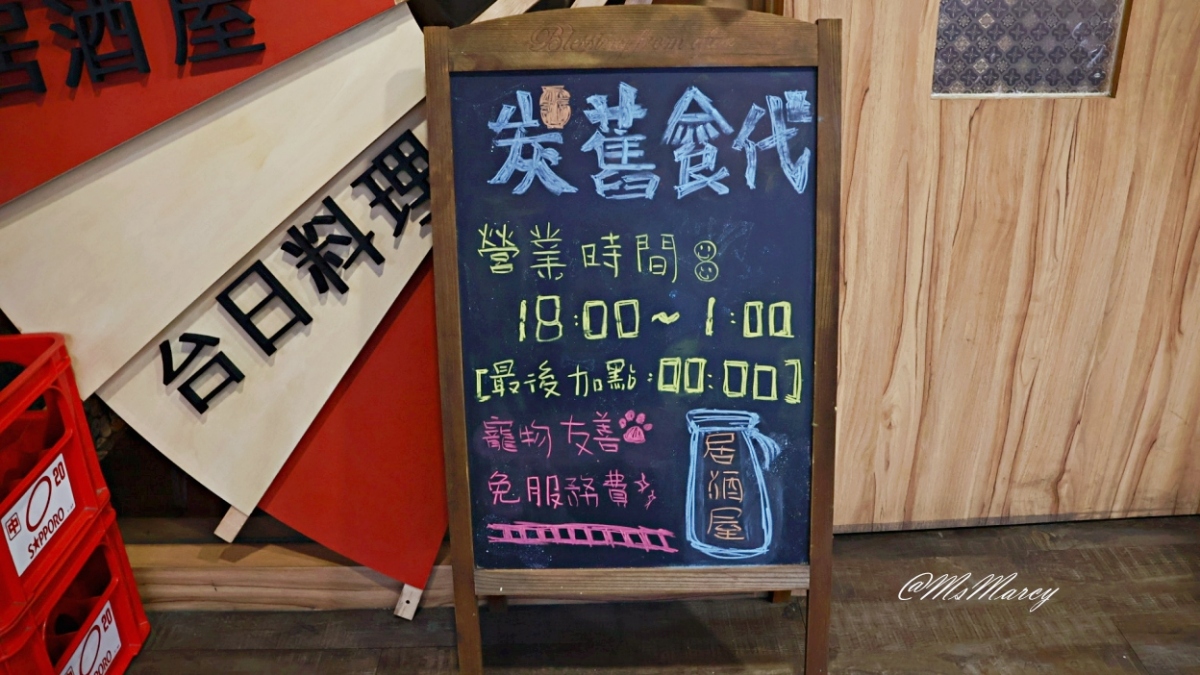 居酒屋
台日料理
炭舊食代
營業時間:
18:00~1:00
[最後加點:00:00]
寵物友善
免服務費
居酒屋
20
SAPPORO
20
@MsMarcy